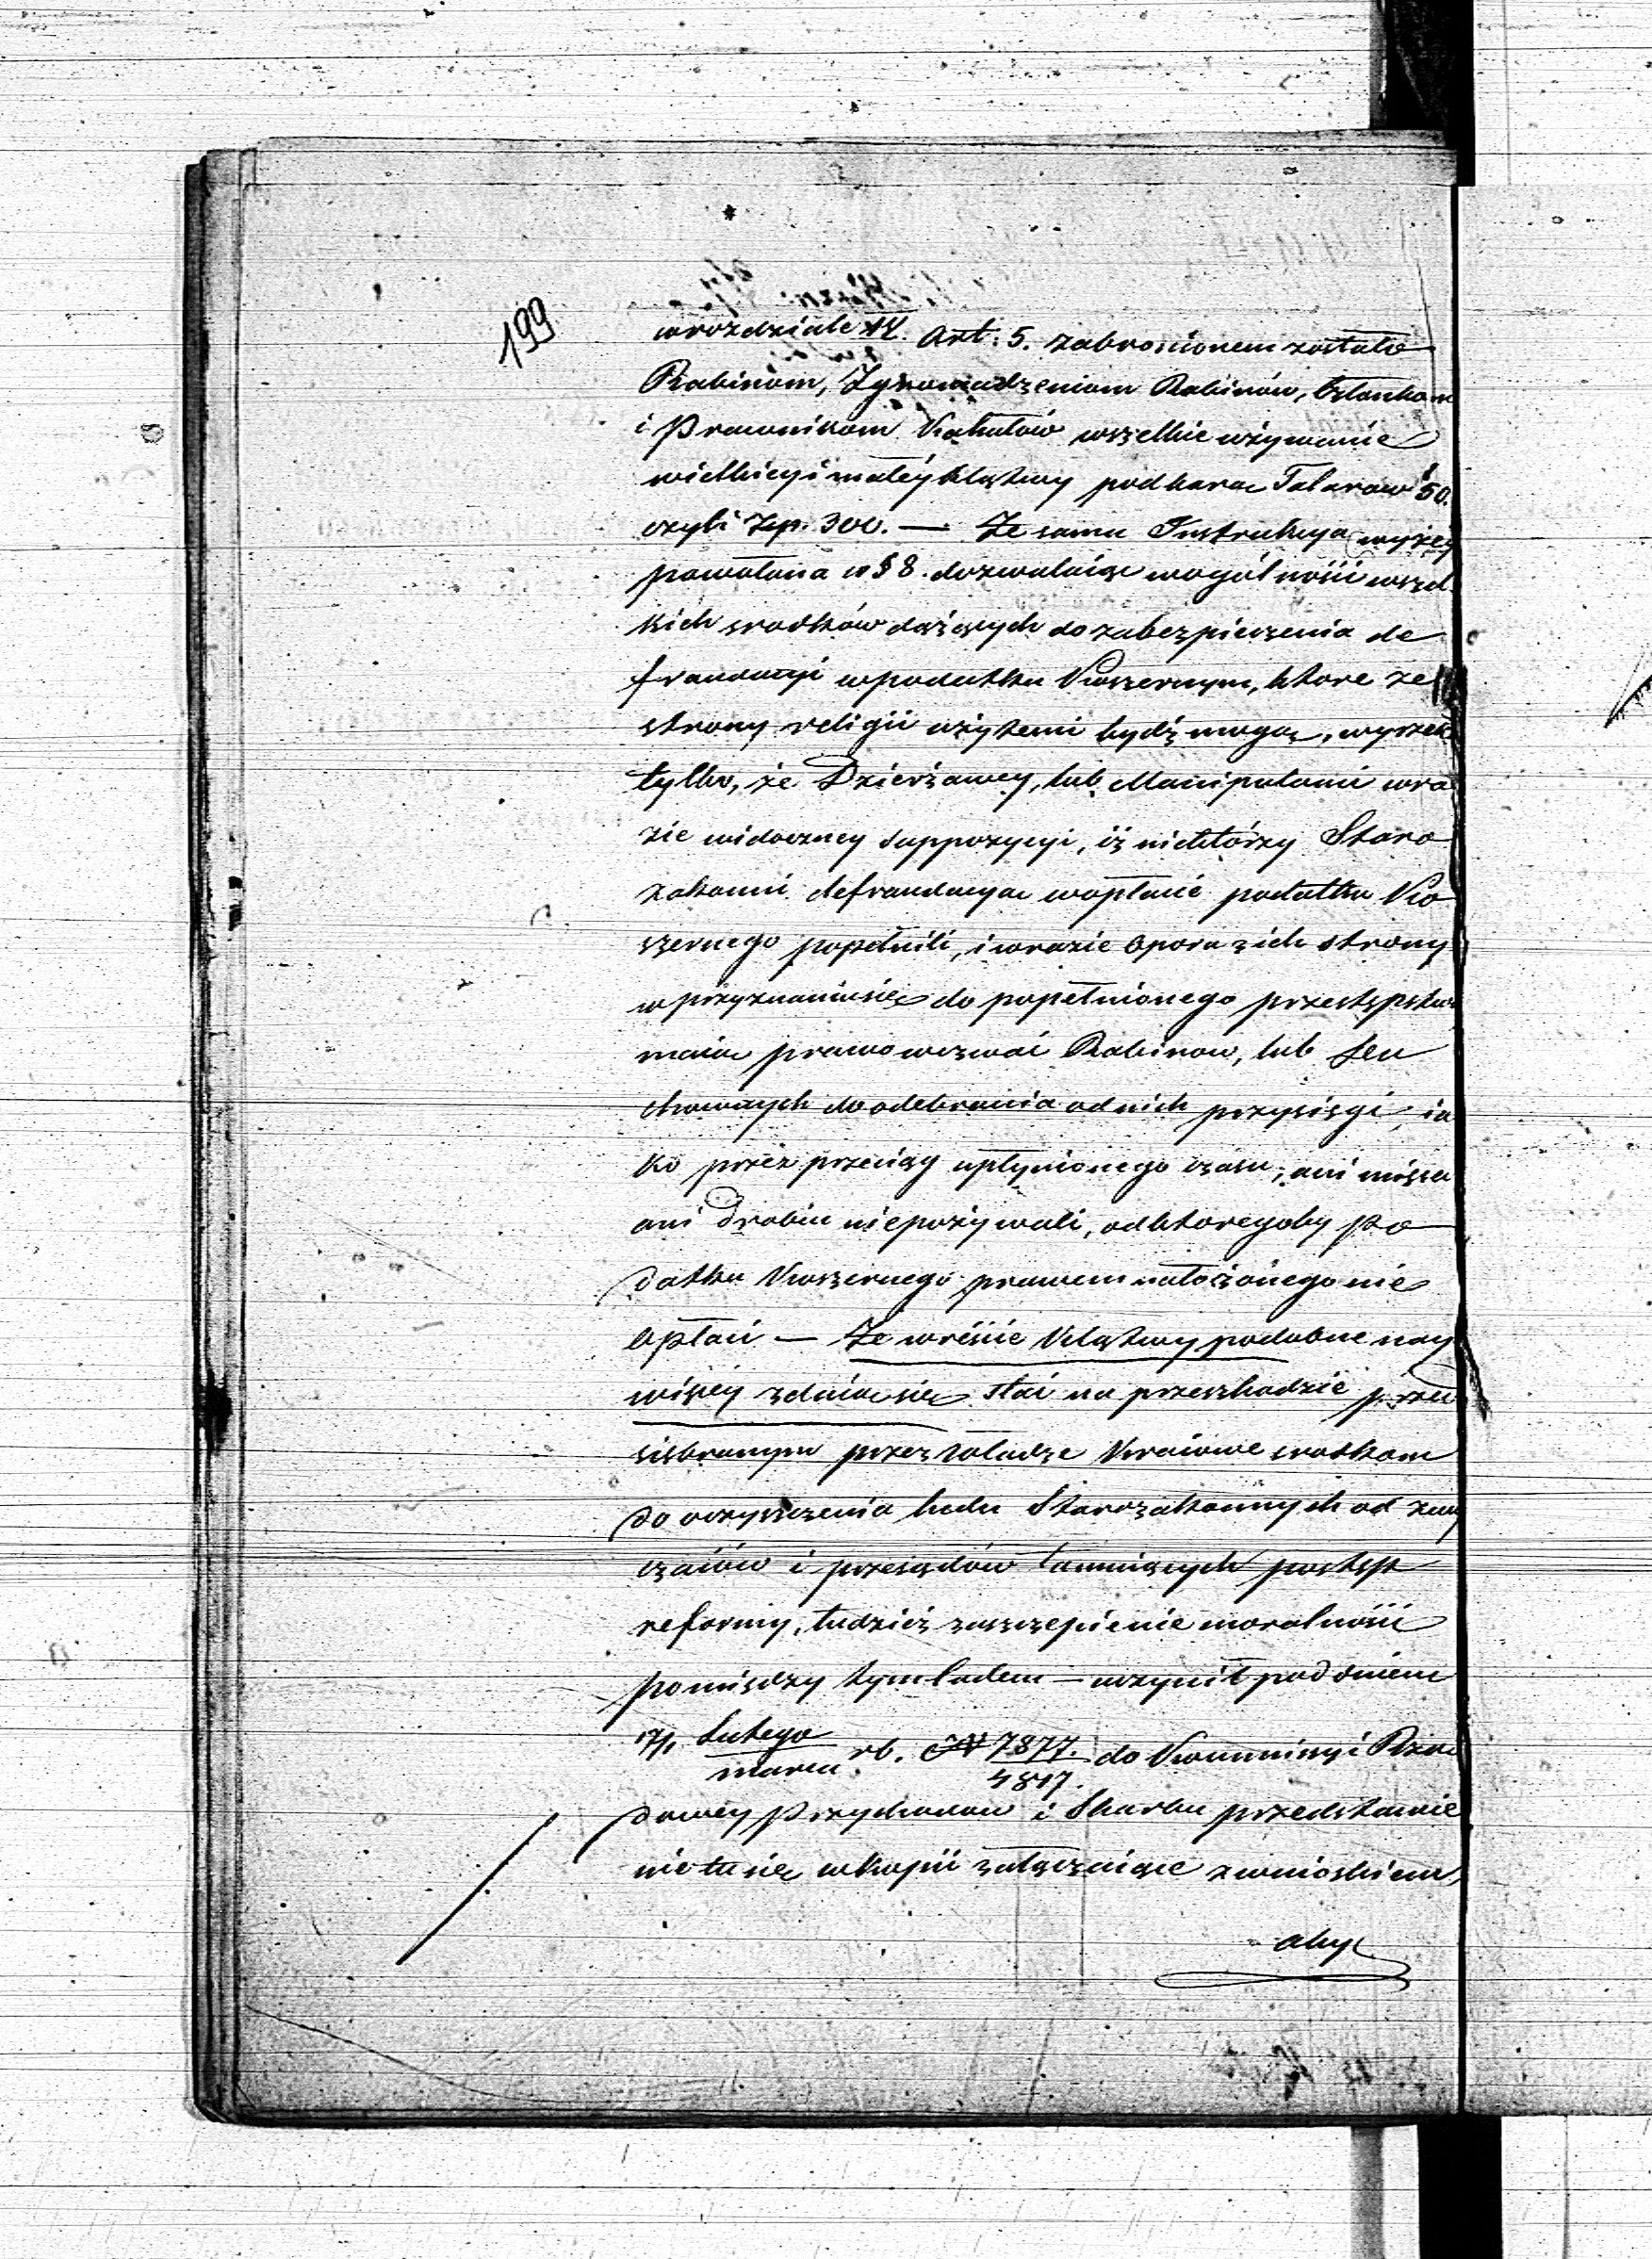 199
w rozdziale IV. Art: 5. zabronionem zostało
Rabinom, Zgromadzeniom Rabinów, Członkom
i Prawnikom Kahałów wszelkie używanie
wielkiey i małey klątwy pod karą Talarow 50.
czyli Zp. 300. — Że sama Instrukcya wyżey
powołana w § 8. dozwalaiąc wogólności wszel
kich srodków dążących do zabezpieczenia de
fraudacyi w podatku Koszernym, ktore ze
strony religii użytemi bydź mogą, wyrzek
tylko, że Dzierżawcy, lub Manipulanci w ra
zie widoczney suppozycyi, iż niektórzy Staro
zakonni defraudacyą w opłacie podatku Ko
szernego popełnili, i w razie oporu z ich strony
w przyznaniu się do popełnionego przestępstwa
maią prawo wezwać Rabinow, lub
chownych do odebrania od nich przysięgi, ia
ko przez przeciąg upłynionego czasu, ani mięsa
ani Drobiu nie pożywali, od ktoregoby po
datku Koszernego prawem nałożonego nie
Opłacić — Że wreście Klątwy podobne nay
więcey zdaią się stać na przeszkodzie przed
siębranym przez Władze Kraiowe srodkom
do oczyszczenia ludu Starozakonnych od zwy
czaiów i przesądów tamuiących postęp
reformy, tudzież zaszczepienie moralności
pomiędzy tym ludem — uczynił pod dniem
17/1 Lutego
Marca rb. N 7877.
4817. do Kommissyi Rzą
dowey Przychodow i Skarbu przedstawie
nie tu się w kopii załączaiące z wnioskiem,
aby